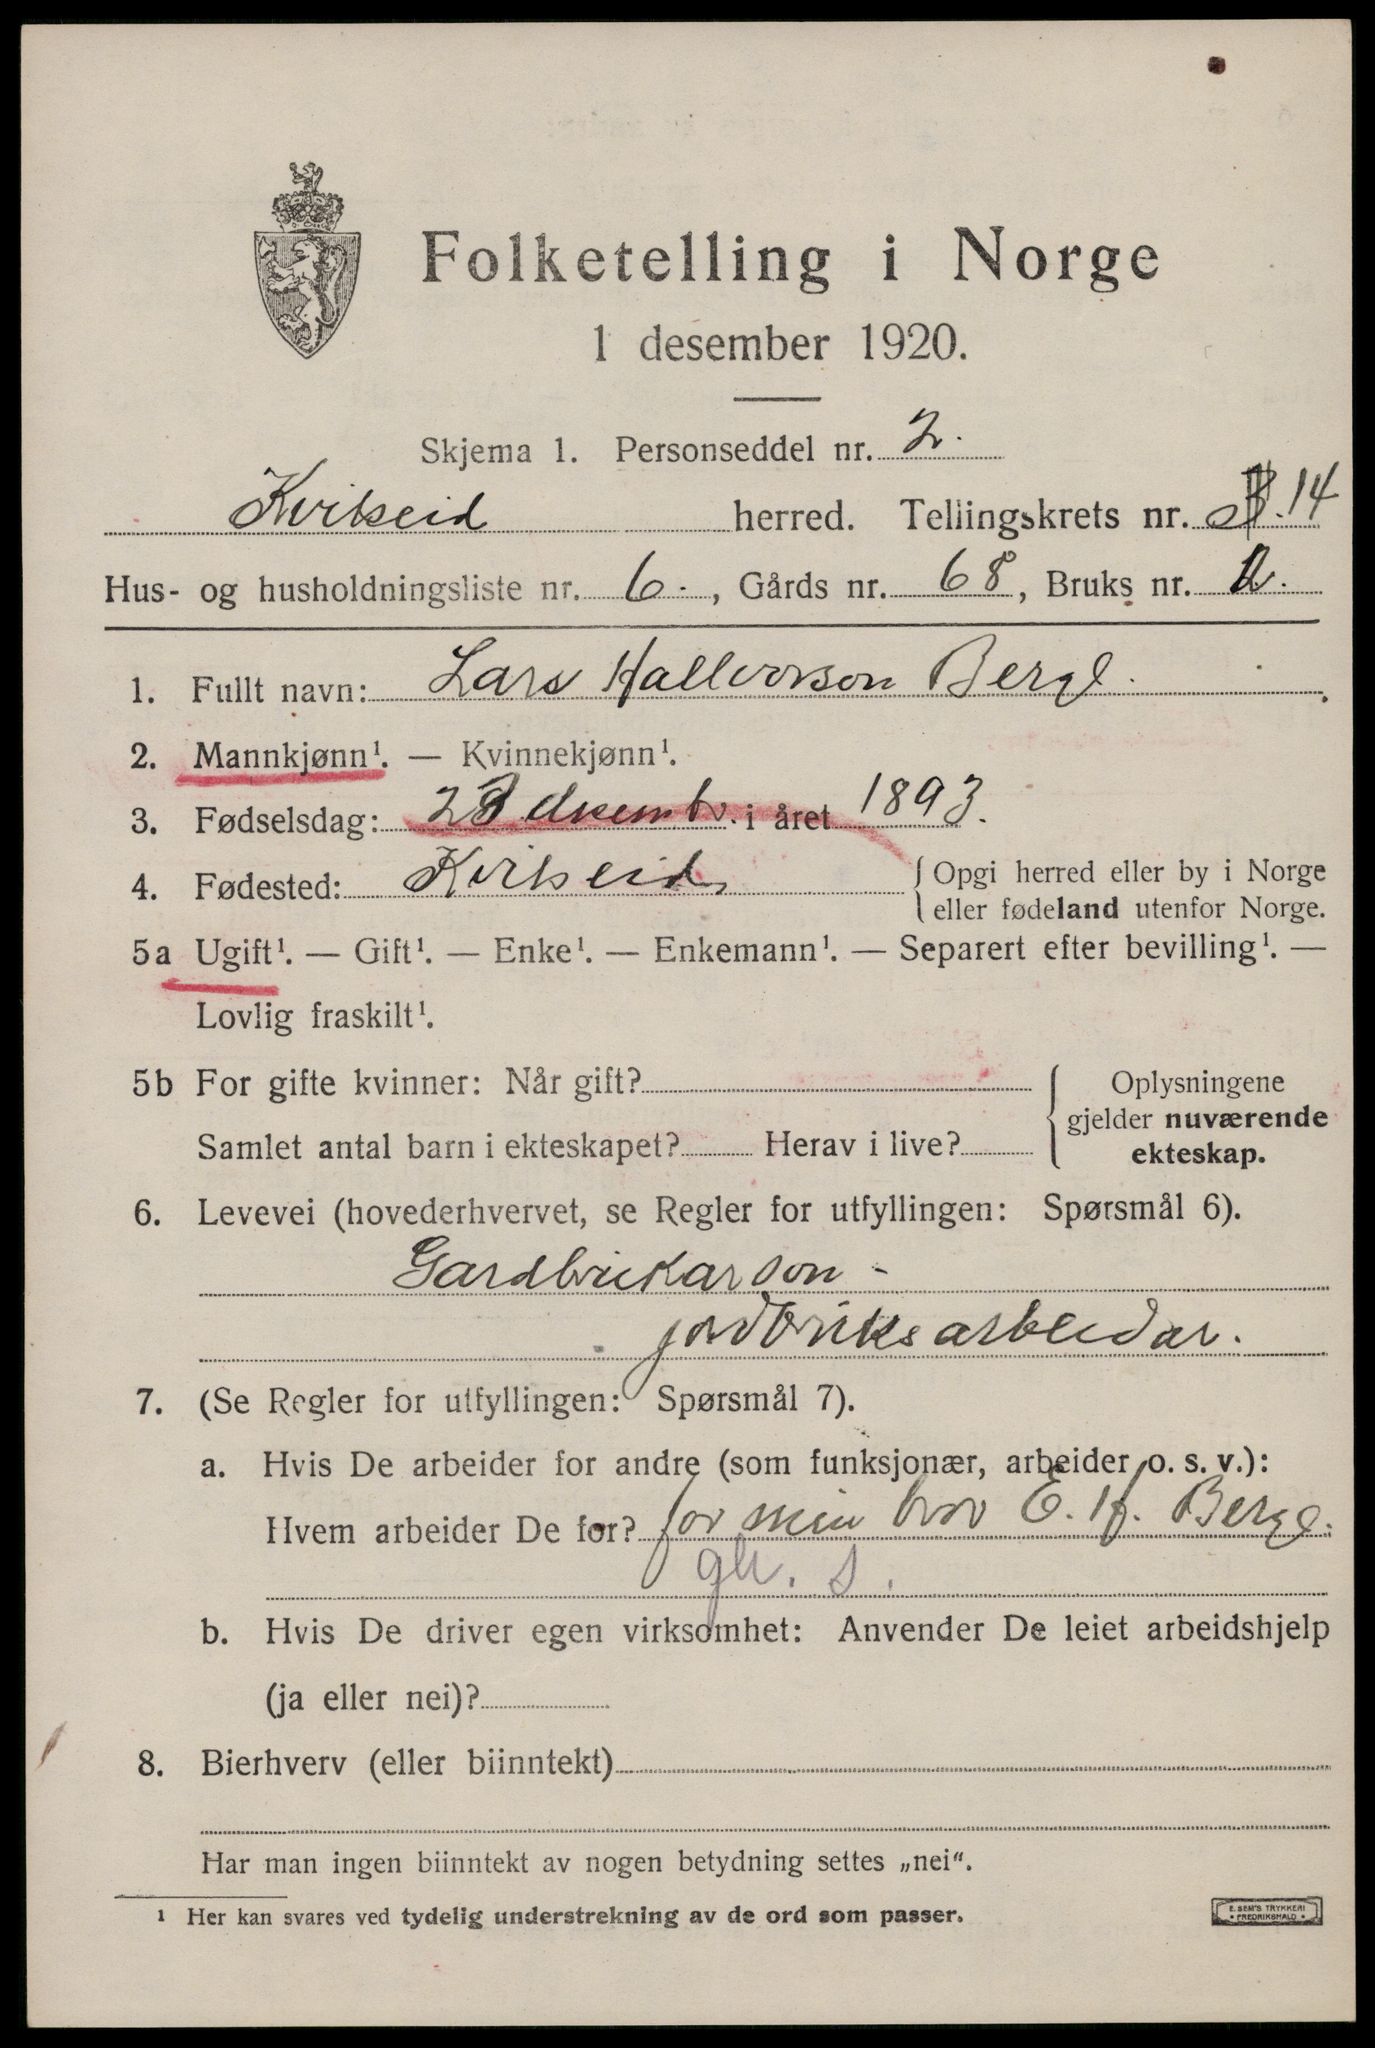 Folketelling i Norge
1 desember 1920.
Skjema 1. Personseddel nr. 2.
Kvitseid herred. Tellingskrets nr. 14
Hus- og husholdningsliste nr. 6., Gårds nr. 68, Bruks nr.
1. Fullt navn: Lars Hallvorson Berge.
2. Mannkjønn¹. — Kvinnekjønn¹.
3. Fødselsdag: 23 desembr. i året 1893.
4. Fødested: Kvitseid { Opgi herred eller by i Norge
eller fødeland utenfor Norge.
5a Ugift¹. — Gift¹. — Enke¹. — Enkemann¹. — Separert efter bevilling¹. —
Lovlig fraskilt¹.
5b For gifte kvinner: Når gift? { Oplysningene
gjelder nuværende
Samlet antal barn i ekteskapet? Herav i live? ekteskap.
6. Levevei (hovederhvervet, se Regler for utfyllingen: Spørsmål 6).
Gardbrukarson -
jordbruksarbeidar.
7. (Se Regler for utfyllingen: Spørsmål 7).
a. Hvis De arbeider for andre (som funksjonær, arbeider o. s. v.):
Hvem arbeider De for? for min bror E. H. Berge.
b. Hvis De driver egen virksomhet: Anvender De leiet arbeidshjelp
(ja eller nei)?
8. Bierhverv (eller biinntekt)
Har man ingen biinntekt av nogen betydning settes „nei“.
¹ Her kan svares ved tydelig understrekning av de ord som passer.
E. SEM'S TRYKKERI
• FREDRIKSHALD •